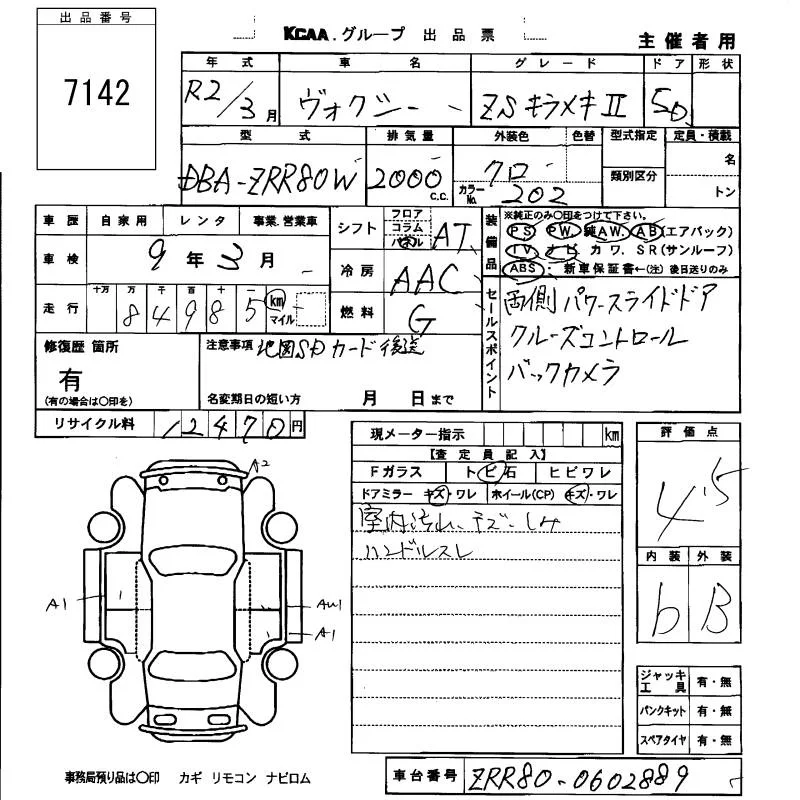 出品番号
7142
KCAA.グループ 出品票
主催者用
年式 車名 グレード ドア 形状
R2/3月 ヴォクシー ZSキラメキⅡ 5D
型式 排気量 外装色 色替 型式指定 定員・積載
DBA-ZRR80W 2000 c.c. クロ 名
カラーNo. 202 類別区分 トン
車歴 自家用 レンタ 事業.営業車
シフト フロア コラム パネル AT
装備品 ※純正のみ○印をつけて下さい。
PS PW 純AW. AB(エアバック)
TV ナビ カワ. SR(サンルーフ)
ABS 新車保証書←(注)後日送りのみ
車検 9年3月
冷房 AAC
走行 十万 万 千 百 十 一
84985 km マイル
燃料 G
セールスポイント
両側パワースライドドア
クルーズコントロール
バックカメラ
修復歴 箇所
有
(有の場合は○印を)
注意事項 地図SDカード後送
名変期日の短い方 月 日まで
リサイクル料 12470円
現メーター指示 km
評価点
4.5
【査定員記入】
Fガラス トビ石 ヒビワレ
ドアミラー キズ・ワレ ホイール(CP) キズ・ワレ
室内汚れ、キズ、しみ
ハンドルスレ
A2
A1
AW1
A1
内装 外装
b B
ジャッキ工具 有・無
パンクキット 有・無
スペアタイヤ 有・無
事務局預り品は○印 カギ リモコン ナビロム
車台番号 ZRR80-0602889